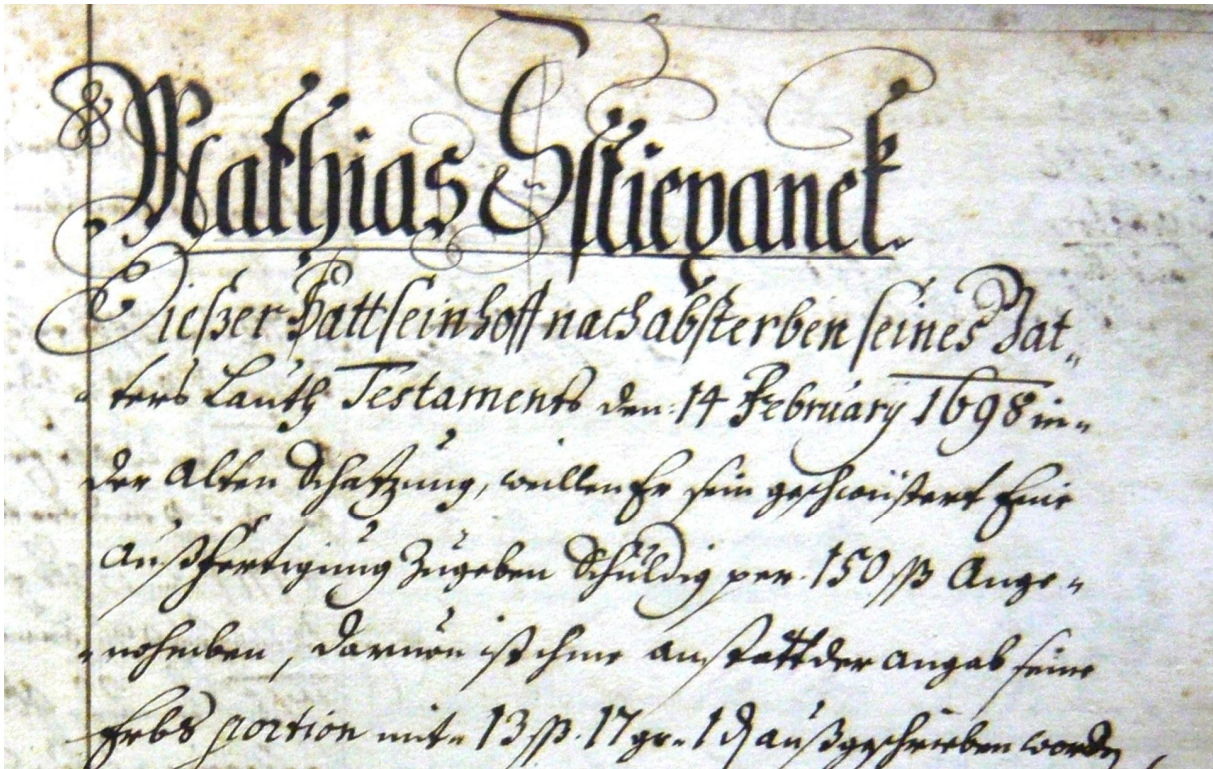 Mathias Sstiepanek.
Dießer Hatt sein hoff nach absterben seines Vat„
ters Lauth Testaments den: 14 February 1698 in„
der Alten Schatzung, weillen Er sein geschwüstert Eine
Außfertigung Zugeben Schuldig per. 150 ßß Ange„
„nohmben, daruon ist ihme anstatt der angab seine
Erbs portion mit„ 13 ßß. 17 gr„ 1 ₰ außgeschrieben worden,